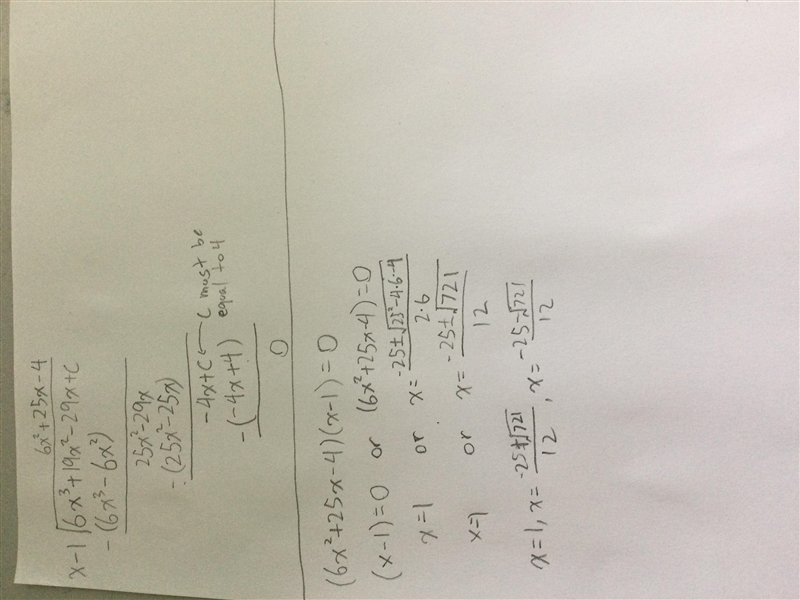 6x²+25x-4
x-1√6x³+19x²-29x+C
-(6x³-6x²)
25x²-29x
-(25x²-25x)
-4x+C ← C must be
equal to 4
-(-4x+4)
0
(6x²+25x-4)(x-1)=0
(x-1)=0 or (6x²+25x-4)=0
x=1 or x= -25±√25²-4·6·-4
2·6
x=1 or x= -25±√721
12
x=1, x= -25+√721 / 12, x= -25-√721 / 12